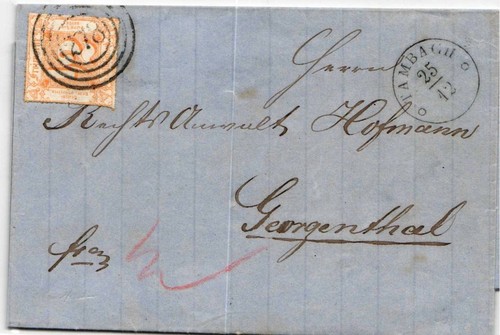 TAMBACH
25
12
Herrn
Rechts Anwalt Hofmann
Georgenthal